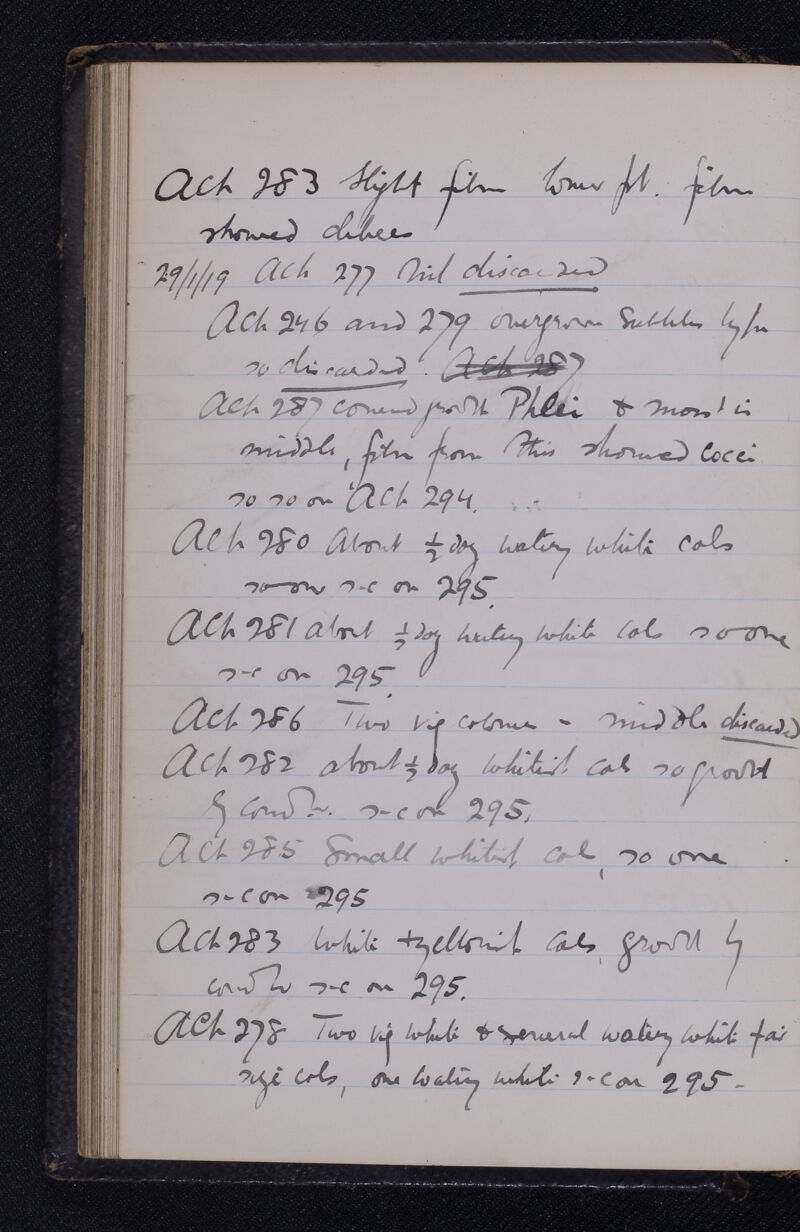 Ach 283 Slight film lower pt. film
showed
29/1/19 Ach 277 Nil discarded
Ach 246 and 279 overgrown Subtilis type
so discarded. Ach 287
Ach 287 growth Phlei & moist in
middle, film from this showed Cocci
so so on Ach 294.
Ach 280 About ½ doz watery white cols
so one s-c on 295.
Ach 281 about ½ doz watery white cols so one
s-c on 295.
Ach 286 Two big colonies - middle discarded
Ach 282 about ½ doz whitish cols so growth
by s-c on 295.
Ach 285 Small whitish col, so one
s-c on 295
Ach 283 White & yellowish cols, growth by
s-c on 295.
Ach 278 Two big white & several watery white fair
size cols, one watery white s-c on 295-